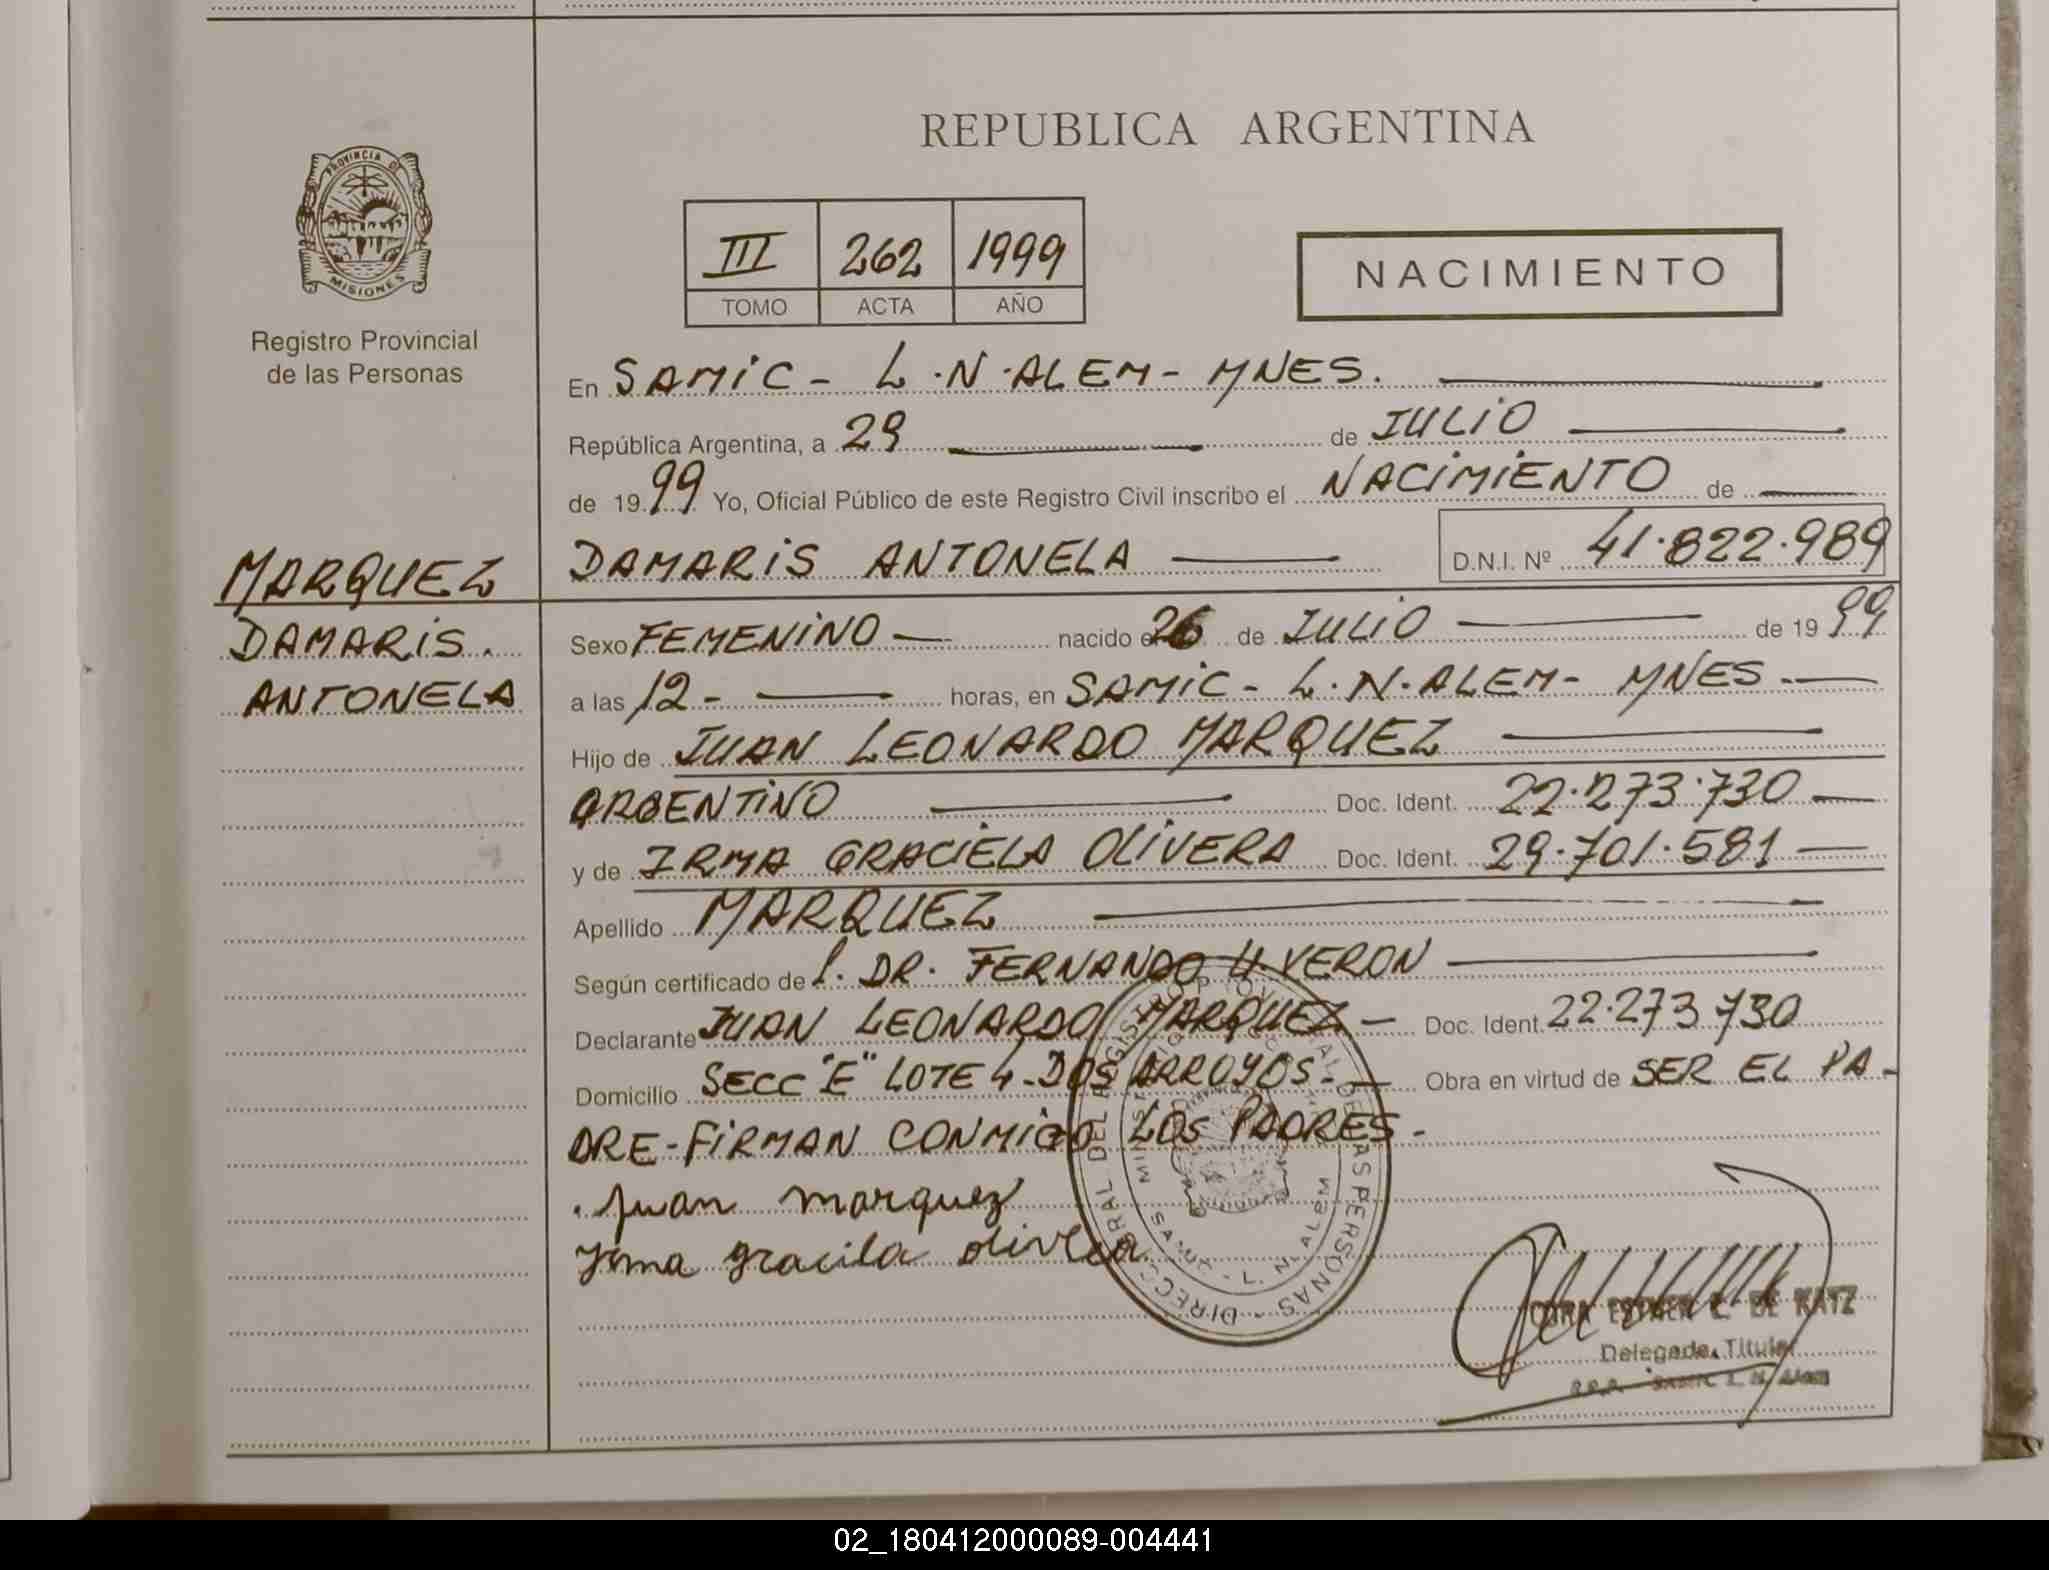 REPUBLICA ARGENTINA
PROVINCIA DE
MISIONES
Registro Provincial
de las Personas
III 262 1999
TOMO ACTA AÑO
NACIMIENTO
En SAMIC - L.N.ALEM - MNES.
República Argentina, a 29 de JULIO
de 1999 Yo, Oficial Público de este Registro Civil inscribo el NACIMIENTO de
DAMARIS ANTONELA D.N.I. Nº 41.822.989
MARQUEZ
DAMARIS.
ANTONELA
Sexo FEMENINO nacido el 26 de JULIO de 1999
a las 12- horas, en SAMIC - L.N.ALEM - MNES -
Hijo de JUAN LEONARDO MARQUEZ
ARGENTINO Doc. Ident. 22.273.730
y de IRMA GRACIELA OLIVERA Doc. Ident. 29.701.581
Apellido MARQUEZ
Según certificado de DR. FERNANDO VERON
Declarante JUAN LEONARDO MARQUEZ - Doc. Ident. 22.273.730
Domicilio SECC "E" LOTE 4 - DOS ARROYOS. - Obra en virtud de SER EL PA-
DRE - FIRMAN CONMIGO LOS PADRES -
Juan marquez
Irma gracila olivera
DE KATZ
Delegada Titular
SAMIC L. N. ALEM
02_180412000089-004441